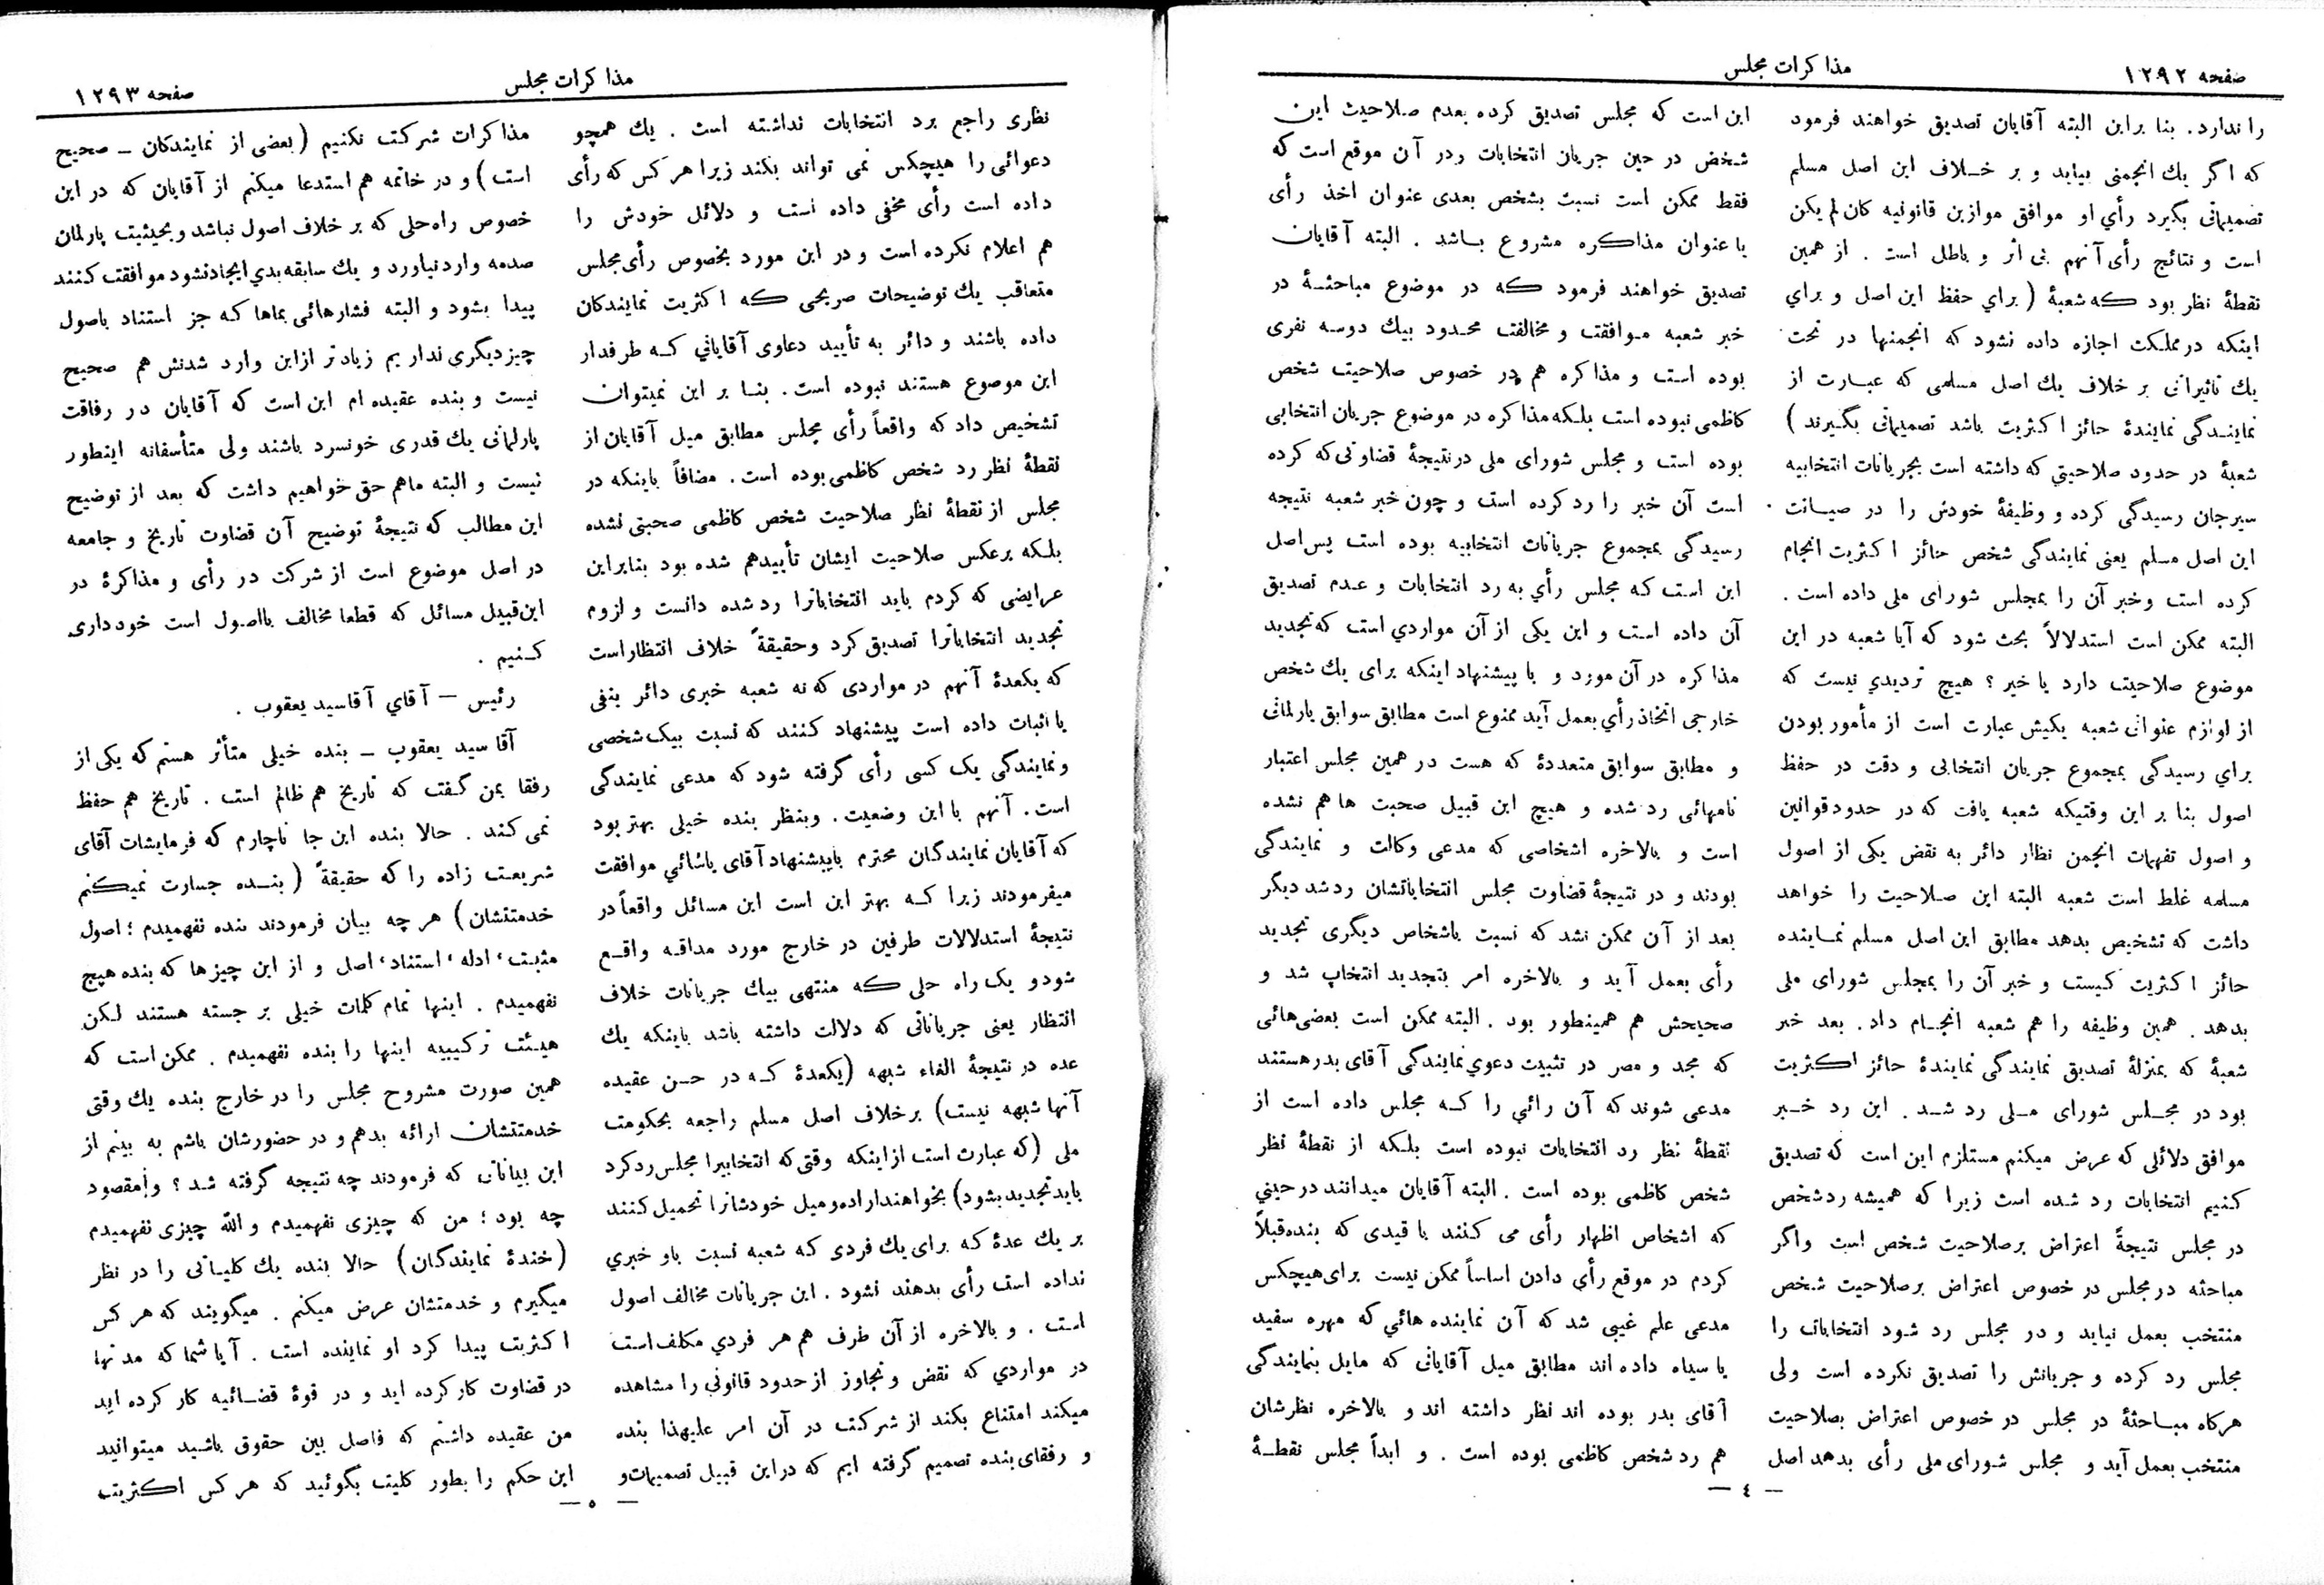 صفحه ۱۲۹۲
مذاکرات مجلس
را ندارد. بنا براین البته آقایان تصدیق خواهند فرمود
که اگر یك انجمنی بیاید و بر خـلاف این اصل مسلم
تصمیماتی بگیرد رأی او موافق موازین قانونیه کان لم یکن
است و نتائج رأی آنهم بی اثر و باطل است . از همین
نقطهٔ نظر بود که شعبهٔ ( برای حفظ این اصل و برای
اینکه در مملکت اجازه داده نشود که انجمنها در تحت
یك تأثیراتی بر خلاف یك اصل مسلمی که عبـارت از
نماینـدگی نمایندهٔ حائز اکثریت باشد تصمیماتی بگـیرند )
شعبهٔ در حدود صلاحیتی که داشته است بجریانات انتخابیه
سیرجان رسیدگی کرده و وظیفهٔ خودش را در صیـانت
این اصل مسلم یعنی نمایندگی شخص حائز اکثریت انجام
کرده است وخبر آن را بمجلس شورای ملی داده است .
البته ممکن است استدلالاً بحث شود که آیا شعبه در این
موضوع صلاحیت دارد یا خیر ؟ هیچ تردیدی نیست که
از لوازم عنوانی شعبه یکیش عبارت است از مأمور بودن
برای رسیدگی بمجموع جریان انتخابی و دقت در حفظ
اصول بنا بر این وقتیکه شعبه یافت که در حدود قوانین
و اصول تفهیمات انجمن نظار دائر به نقض یکی از اصول
مسلمه غلط است شعبه البته این صلاحیت را خواهد
داشت که تشخیص بدهد مطابق این اصل مسلم نمـاینده
حائز اکثریت کیست و خبر آن را بمجلس شورای ملی
بدهد . همین وظیفه را هم شعبه انجـام داد. بعد خبر
شعبهٔ که بمنزلهٔ تصدیق نمایندگی نمایندهٔ حائز اکثریت
بود در مجـلس شورای مـلی رد شـد . این رد خـبر
موافق دلائلی که عرض میکنم مستلزم این است که تصدیق
کنیم انتخابات رد شده است زیرا که همیشه رد شخص
در مجلس نتیجةً اعتراض بر صلاحیت شخص است واگر
مباحثه در مجلس در خصوص اعتراض بر صلاحیت شخص
منتخب بعمل نیاید و در مجلس رد شود انتخابات را
مجلس رد کرده و جریانش را تصدیق نکرده است ولی
هرکاه مبـاحثهٔ در مجلس در خصوص اعتراض بصلاحیت
منتخب بعمل آید و مجلس شورای ملی رأی بدهد اصل
این است که مجلس تصدیق کرده بعدم صلاحیت این
شخض در حین جریان انتخابات ودر آن موقع است که
فقط ممکن است نسبت بشخص بعدی عنوان اخذ رأی
یا عنوان مذاکره مشروع بـاشد . البته آقایان
تصدیق خواهند فرمود که در موضوع مباحثـهٔ در
خبر شعبه مـوافقت و مخالفت محـدود بیك دوسه نفری
بوده است و مذاکره هم در خصوص صلاحیت شخص
کاظمی نبوده است بلـکه مذاکره در موضوع جریان انتخابی
بوده است و مجلس شورای ملی در نتیجهٔ قضاوتی که کرده
است آن خبر را رد کرده است و چون خبر شعبه نتیجه
رسیدگی بمجموع جریانات انتخابیه بوده است پس اصل
این است که مجلس رأی به رد انتخابات و عـدم تصدیق
آن داده است و این یکی از آن مواردی است که تجدید
مذاکره در آن مورد و با پیشنهاد اینکه برای یك شخص
خارجی اتخاذ رأی بعمل آید ممنوع است مطابق سوابق پارلمانی
و مطابق سوابق متعددهٔ که هست در همین مجلس اعتبار
نامهائی رد شده و هیچ این قبیل صحبت ها هم نشده
است و بالاخره اشخاصی که مدعی وکالت و نمایندگی
بودند و در نتیجهٔ قضاوت مجلس انتخاباتشان رد شد دیگر
بعد از آن ممکن نشد که نسبت باشخاص دیگری تجدید
رأی بعمل آید و بالاخره امر بتجدید انتخاب شد و
صحیحش هم همینطور بود . البته ممکن است بعضی هائی
که مجد و مصر در تثبیت دعوی نمایندگی آقای بدر هستند
مدعی شوند که آن رائی را کـه مجلس داده است از
نقطهٔ نظر رد انتخابات نبوده است بلـکه از نقطهٔ نظر
شخص کاظمی بوده است . البته آقایان میدانند در حینی
که اشخاص اظهار رأی می کنند با قیدی که بنده قبلاً
کردم در موقع رأی دادن اساساً ممکن نیست برای هیچکس
مدعی علم غیبی شد که آن نماینده هائی که مهره سفید
یا سیاه داده اند مطابق میل آقایانی که مایل بنمایندگی
آقای بدر بوده اند نظر داشته اند و بالاخره نظرشان
هم رد شخص کاظمی بوده است . و ابداً مجلس نقطـهٔ
— ٤ —
مذاکرات مجلس
صفحه ۱۲۹۳
نظری راجع برد انتخابات نداشته است . یك همچو
دعوائی را هیچکس نمی تواند بکند زیرا هر کس که رأی
داده است رأی مخفی داده است و دلائل خودش را
هم اعلام نکرده است و در این مورد بخصوص رأی مجلس
متعاقب یك توضیحات صریحی که اکثریت نمایندکان
داده باشند و دائر به تأیید دعاوی آقایانی کـه طرفدار
این موصوع هستند نبوده است . بنـا بر این نمیتوان
تشخیص داد که واقعاً رأی مجلس مطابق میل آقایان از
نقطهٔ نظر رد شخص کاظمی بوده است . مضافاً باینکه در
مجلس از نقطهٔ نظر صلاحیت شخص کاظمی صحبتی نشده
بلـکه برعکس صلاحیت ایشان تأییدهم شده بود بنابراین
عرایضی که کردم باید انتخاباترا رد شده دانست و لزوم
تجدید انتخاباترا تصدیق کرد وحقیقةً خلاف انتظار است
که یکعدهٔ آنهم در مواردی که نه شعبه خبری دائر بنفی
یا اثبات داده است پیشنهاد کنند که نسبت بیک شخصی
و نمایندگی یک کسی رأی گرفته شود که مدعی نمایندگی
است . آنهم با این وضعیت . وبنظر بنده خیلی بهتر بود
که آقایان نمایندگان محترم باپیشنهاد آقای یاسائی موافقت
میفرمودند زیرا کـه بهتر این است این مسائل واقعاً در
نتیجهٔ استدلالات طرفین در خارج مورد مداقه واقـع
شود و یک راه حلی که منتهی بیك جریانات خلاف
انتظار یعنی جریاناتی که دلالت داشته باشد باینکه یك
عده در نتیجهٔ الغاء شبهه (یکعدهٔ کـه در حسن عقیده
آنها شبهه نیست) برخلاف اصل مسلم راجعه بحکومت
ملی (که عبارت است از اینکه وقتی که انتخابیرا مجلس رد کرد
باید تجدید بشود) بخواهند اراده و میل خودشانرا تحمیل کنند
بر یك عدهٔ که برای یك فردی که شعبه نسبت باو خبری
نداده است رأی بدهند نشود . این جریانات مخالف اصول
است . و بالاخره از آن طرف هم هر فردی مکلف است
در مواردی که نقض و تجاوز از حدود قانونی را مشاهده
میکند امتناع بکند از شرکت در آن امر علیهذا بنده
و رفقای بنده تصمیم گرفته ایم که در این قبیل تصمیمات و
مذاکرات شرکت نکنیم ( بعضی از نمایندکان – صحیح
است ) و در خاتمه هم استدعا میکنم از آقایان که در این
خصوص راه حلی که بر خلاف اصول نباشد و بحیثیت پارلمان
صدمه وارد نیاورد و یك سابقه بدی ایجاد نشود موافقت کنند
پیدا بشود و البته فشارهائی بماها که جز استناد باصول
چیز دیگری نداریم زیادتر از این وارد شدنش هم صحیح
نیست و بنده عقیده ام این است که آقایان در رفاقت
پارلمانی یك قدری خونسرد باشند ولی متأسفانه اینطور
نیست و البته ماهم حق خواهیم داشت که بعد از توضیح
این مطالب که نتیجهٔ توضیح آن قضاوت تاریخ و جامعه
در اصل موضوع است از شرکت در رأی و مذاکرهٔ در
این قبیل مسائل که قطعا مخالف بااصول است خود داری
کـنیم .
رئیس — آقای آقاسید یعقوب .
آقا سید یعقوب – بنده خیلی متأثر هستم که یکی از
رفقا بمن گـفت که تاریخ هم ظالم است . تاریخ هم حفظ
نمی کند . حالا بنده این جا ناچارم که فرمایشات آقای
شریعت زاده را که حقیقةً ( بنـده جسارت نمیکنم
خدمتشان ) هر چه بیان فرمودند بنده نفهمیدم ؛ اصول
مثبت، ادله ، استناد، اصل و از این چیزها که بنده هیچ
نفهمیدم . اینها تمام کلمات خیلی بر جسته هستند لـکن
هیـئت ترکیبیه اینها را بنده نفهمیدم . ممکن است که
همین صورت مشروح مجلس را در خارج بنده یك وقتی
خدمتشان ارائه بدهم و در حضورشان باشم به بینم از
این بیاناتی که فرمودند چه نتیجه گرفته شـد ؟ و مقصود
چه بود ؛ من که چیزی نفهمیدم و الله چیزی نفهمیدم
( خندهٔ نمایندگان ) حالا بنده یك کلیـاتی را در نظر
میگیرم و خدمتشان عرض میکنم . میگویند که هر کس
اکثریت پیدا کرد او نماینده است . آیا شما که مدتها
در قضاوت کار کرده اید و در قوهٔ قضـائیه کار کرده اید
من عقیده داشتم که فاصل بین حقوق باشید میتوانید
این حکم را بطور کلیت بگوئید که هر کس اکثریت
— ٥ —